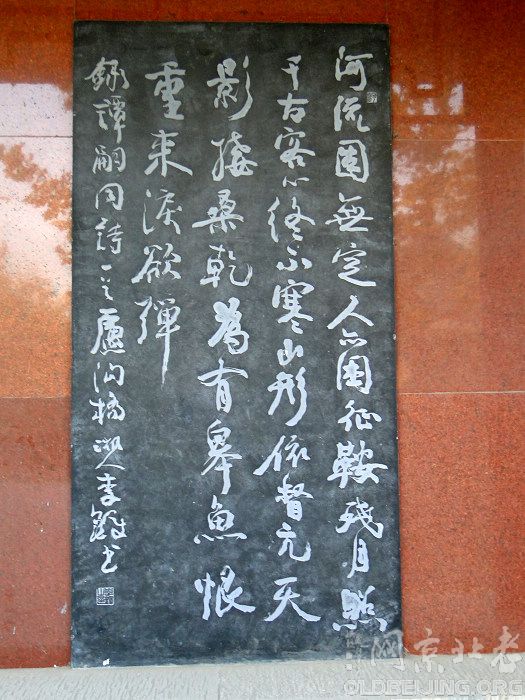 河流固無定人亦困征鞍殘月照
千古客心終不寒山形依督亢天
影接桑乾為有皋魚恨
重来淚欲彈
錄譚嗣同詩一首盧沟橋李鐸书
老北京网
OLDBEIJING.ORG